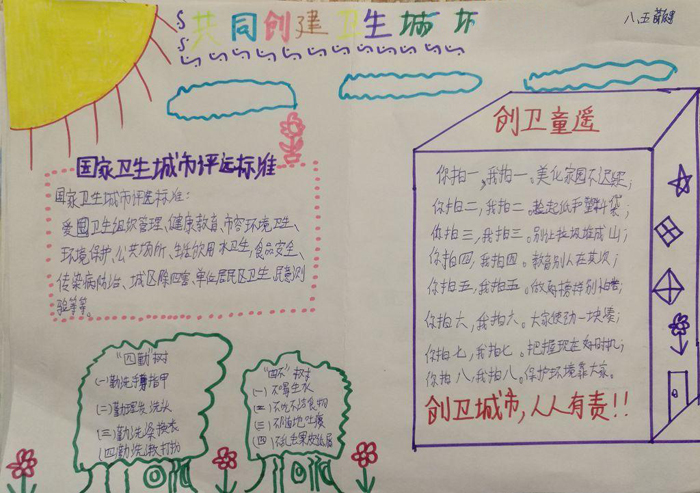 共同创建卫生城市
八、五
国家卫生城市评选标准
国家卫生城市评选标准:
爱国卫生组织管理、健康教育、市容环境卫生、
环境保护、公共场所、生活饮用水卫生,食品安全、
传染病防治、城区除四害、单位居民区卫生、民意测
验等等。
"四勤"树
(一)勤洗手剪指甲
(二)勤理发洗头
(三)勤洗澡换衣
(四)勤洗漱打扮
"四不"树
(一)不喝生水
(二)不吃不洁食物
(三)不随地吐痰
(四)不乱丢果皮纸屑
创卫童遥
你拍一,我拍一、美化家园不迟疑;
你拍二,我拍二。捡起纸和塑料袋;
你拍三,我拍三。别让垃圾堆成山;
你拍四,我拍四。教育别人在其次;
你拍五,我拍五。做好榜样别怕苦;
你拍六,我拍六。大家使劲一块凑;
你拍七,我拍七。把握现在好时机;
你拍八,我拍八。保护环境靠大家。
创卫城市,人人有责!!